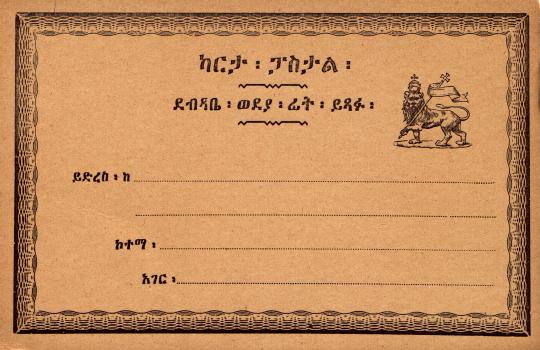 ካርታ ፡ ፓስታል ፡
ደብዳቤ ፡ ወደያ ፡ ፊት ፡ ይጻፉ ፡
ይድረስ ፡ ከ
ከተማ ፡
አገር ፡